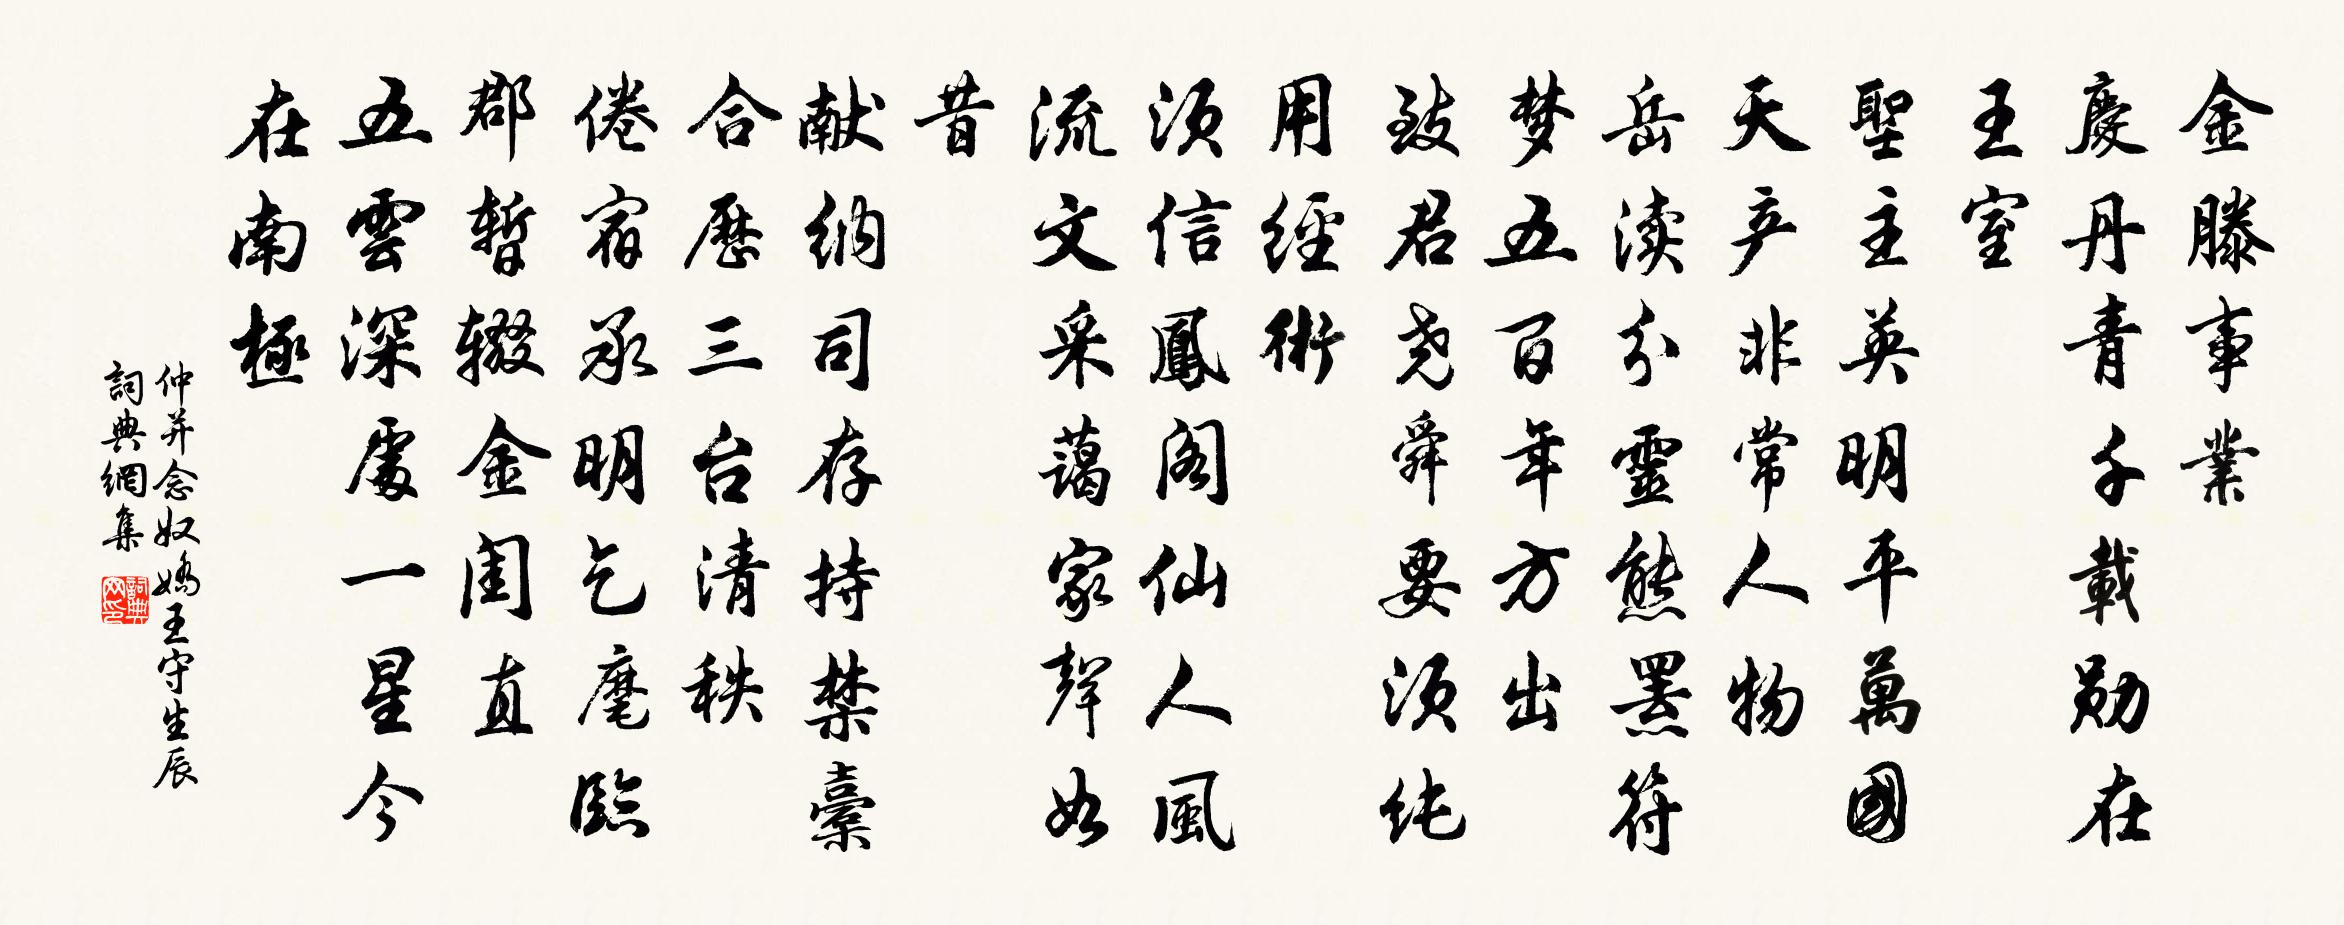 金滕事業
慶丹青千載勋在
王室
聖主英明平萬國
天产非常人物
岳渎分靈熊罴符
梦五百年方出
致君尧舜要须纯
用經術
须信鳳阁仙人風
流文采蔼家聲如
昔
献纳司存持禁橐
合歷三台清秩
倦宿承明乞麾臨
郡暂辍金闺直
五雲深處一星今
在南極
仲并念奴嬌王守生辰
詞典網集